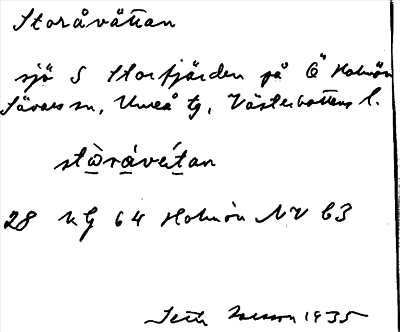 Storåvättan
sjö S Storfjärden på Ö Holmön
Sävars sn, Umeå tg, Västerbottens l.
stò̱ra̱véṯan
28 KG 64 Holmön NV b3
Seth 1935